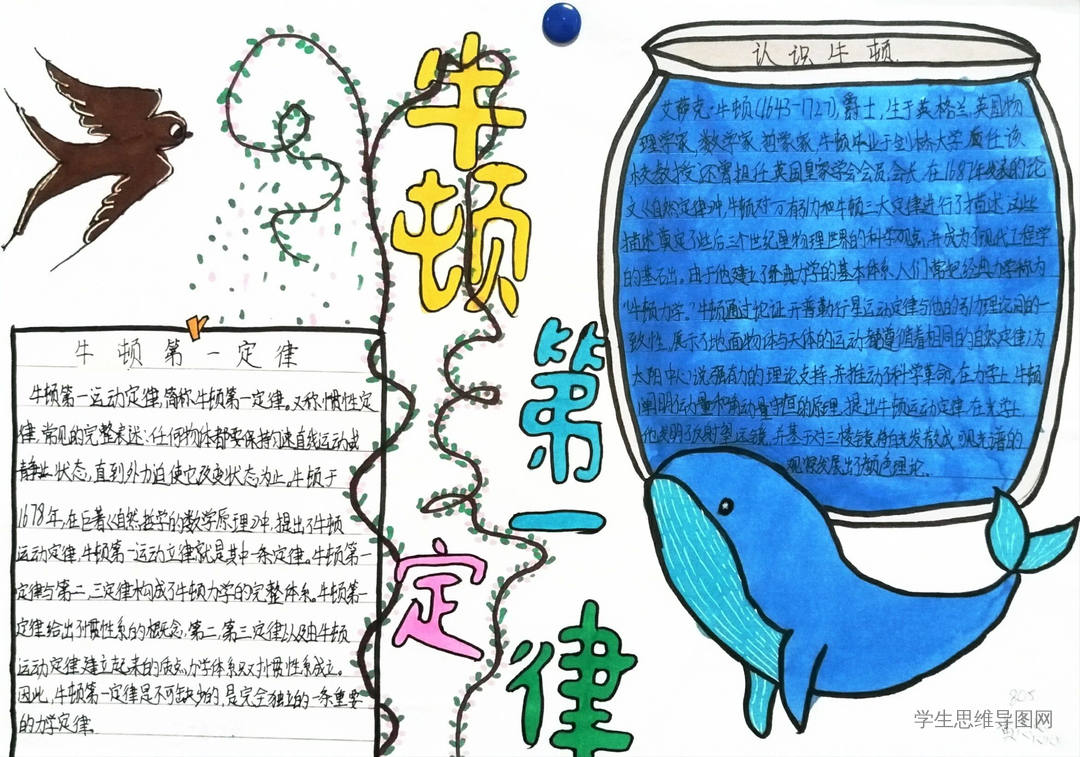 牛顿第一定律
牛顿第一定律
牛顿第一运动定律,简称牛顿第一定律。又称惯性定
律,常见的完整表述:任何物体都要保持匀速直线运动或
静止状态,直到外力迫使它改变状态为止。牛顿于
1678年,在巨著《自然哲学的数学原理》中,提出了牛顿
运动定律,牛顿第一运动立律就是其中一条定律。牛顿第一
定律与第二,三定律构成了牛顿力学的完整体系。牛顿第一
定律给出了惯性系的概念,第二,第三定律以及由牛顿
运动定律建立起来的质点力学体系只对惯性系成立。
因此,牛顿第一定律是不可缺少的,是完全独立的一条重要
的力学定律。
认识牛顿
艾萨克·牛顿(1643-1727),爵士,生于英格兰,英国物
理学家,数学家,哲学家,牛顿毕业于剑桥大学,曾任该
校教授,还曾担任英国皇家学会会员,会长,在1687年发表的论
文《自然定律》中,牛顿对万有引力和牛顿三大定律进行了描述,这些
描述奠定了此后三个世纪里物理世界的科学观点,并成为了现代工程学
的基础。由于他建立了经典力学的基本体系,人们常把经典力学称为
“牛顿力学。”牛顿通过论证开普勒行星运动定律与他的引力理论间的一
致性,展示了地面物体与天体的运动都遵循着相同的自然定律;为
太阳中心说强有力的理论支持,并推动了科学革命。在力学上,牛顿
阐明动量和角动量守恒的原理,提出牛顿运动定律,在光学上,
他发明了反射望远镜,并基于对三棱镜将白光发散成可见光谱的
观察发展出了颜色理论。
805
学生思维导图网